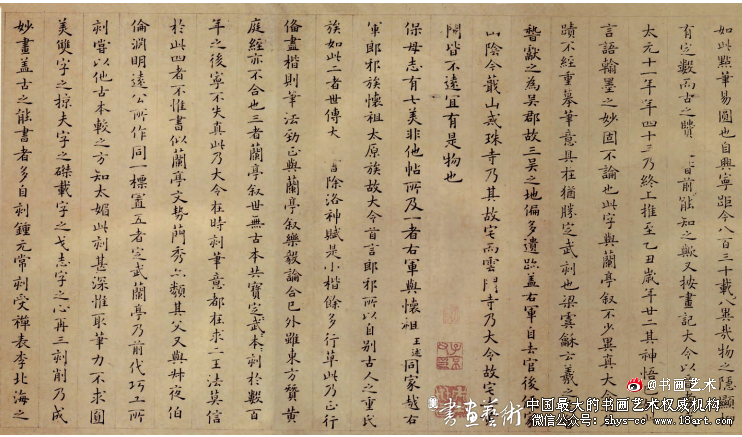 如此點筆易圓也自興寧距今八百三十載八異哉物之隱顯
有定數而古之賢 言前能知之歟又按畫記大令以
太元十一年年四十三乃終上推至乙丑歲年廿二其神悟
言語翰墨之妙固不論也此字與蘭亭叙不少異真大
蹟不經重摹筆意具在猶勝定武刻也梁虞龢云羲之
獻之為吳郡故三吳之地偏多遺跡蓋右軍自去官後
山陰今蕺山戒珠寺乃其故宅而雲門寺乃大令故宅
間皆不遠宜有是物也
保母志有七美非他帖所及一者右軍與懷祖王述同家越右
軍郎邪族懷祖太原族故大令首言郎邪所以自別古人之重氏
族如此二者世傳大 除洛神賦是小楷餘多行草此乃正行
備盡楷則筆法勁正與蘭亭叙樂毅論合已外雖東方贊黃
庭經亦不合也三者蘭亭叙世無古本共寶定武本刻於數百
年之後寧不失真此乃大令在時刻筆意都在求二王法莫信
於此四者不惟書似蘭亭文勢簡秀亦類其父又與舛夜伯
倫淵明遠公所作同一標置五者定武蘭亭乃前代巧工所
刻嘗以他古本較之方知太媚此刻甚深惟取筆力不求圓
美雙字之掠夫字之磔載字之戈志字之心再三刻削乃成
妙畫蓋古之能書者多自刻鍾元常刻受禪表李北海之
書画藝術
@书画艺术
中国最大的书画艺术权威机构
微信公众号:shys-cc www.1122.com